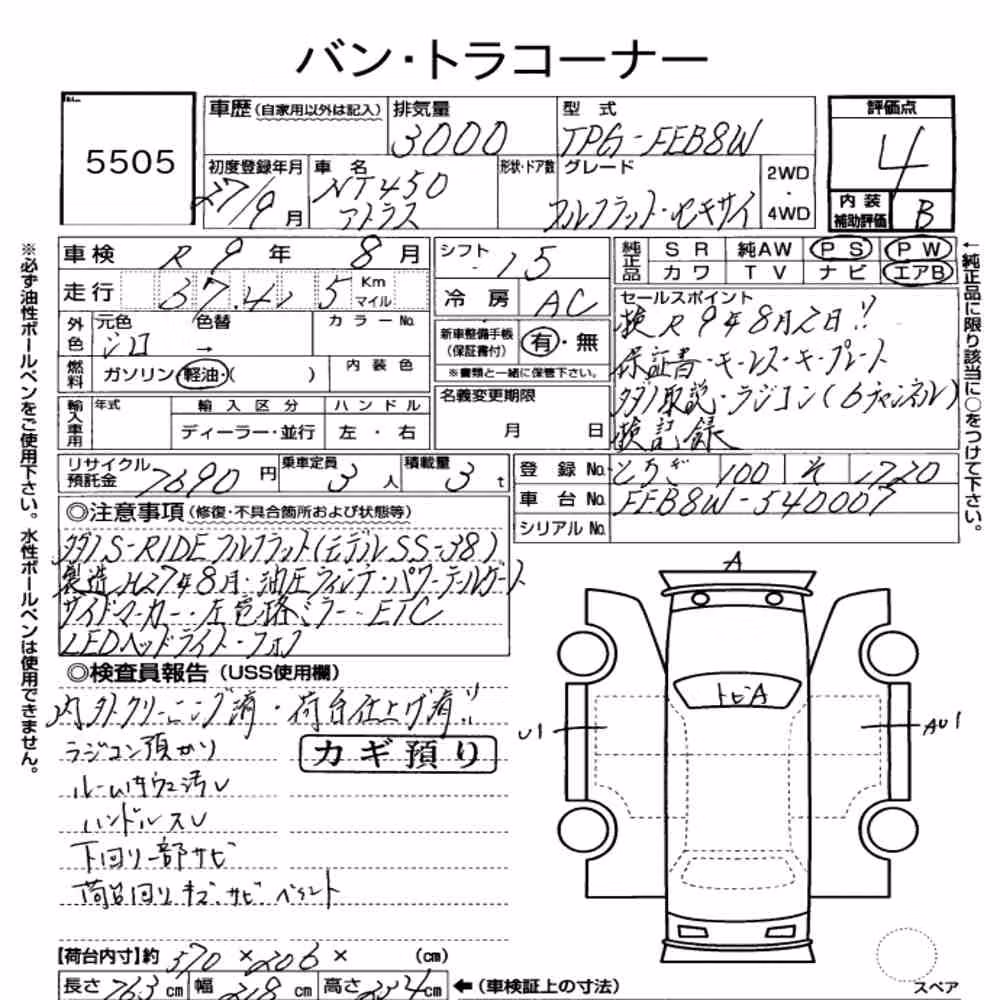 バン・トラコーナー
5505
車歴(自家用以外は記入) 排気量 3000 型式 TPG-FEB8W
評価点 4
内装補助評価 B
初度登録年月 27/9月 車名 NT450 アトラス 形状・ドア数 グレード フルフラット・セキサイ 2WD・4WD
※必ず油性ボールペンをご使用下さい。水性ボールペンは使用できません。
←純正品に限り該当に○をつけて下さい。
車検 R9年8月 シフト 15
純正品 SR 純AW PS PW
カワ TV ナビ エアB
走行 Km マイル 冷房 AC
外色 元色 シロ 色替 → カラーNo.
燃料 ガソリン・軽油・( ) 内装色
新車整備手帳(保証書付) 有・無
※書類と一緒に保管下さい。
セールスポイント
検R9年8月2日!!
保証書・キーレス・キープレート
タダノ取説・ラジコン(6チャンネル)
検記録
輸入車用 年式 輸入区分 ディーラー・並行 ハンドル 左・右
名義変更期限 月 日
リサイクル預託金 7690円 乗車定員 3人 積載量 3t
登録No. とちぎ 100 そ 1720
車台No. FEB8W-540007
シリアルNo.
◎注意事項(修復・不具合箇所および状態等)
タダノS-RIDEフルフラット(モデルSS-38)
製造H27年8月・油圧ウィンチ・パワーテルゲート
サイドマーカー・左電格ミラー・ETC
LEDヘッドライト・フォグ
◎検査員報告(USS使用欄)
内外クリーニング済・荷台仕上げ済!!
ラジコン預かり
カギ預り
ハンドルスレ
下回り一部サビ
荷台回りキズ、サビ
A
トビA
U1
AU1
【荷台内寸】約 570×206× (cm)
長さ 763cm 幅 218cm 高さ cm ←(車検証上の寸法)
スペア